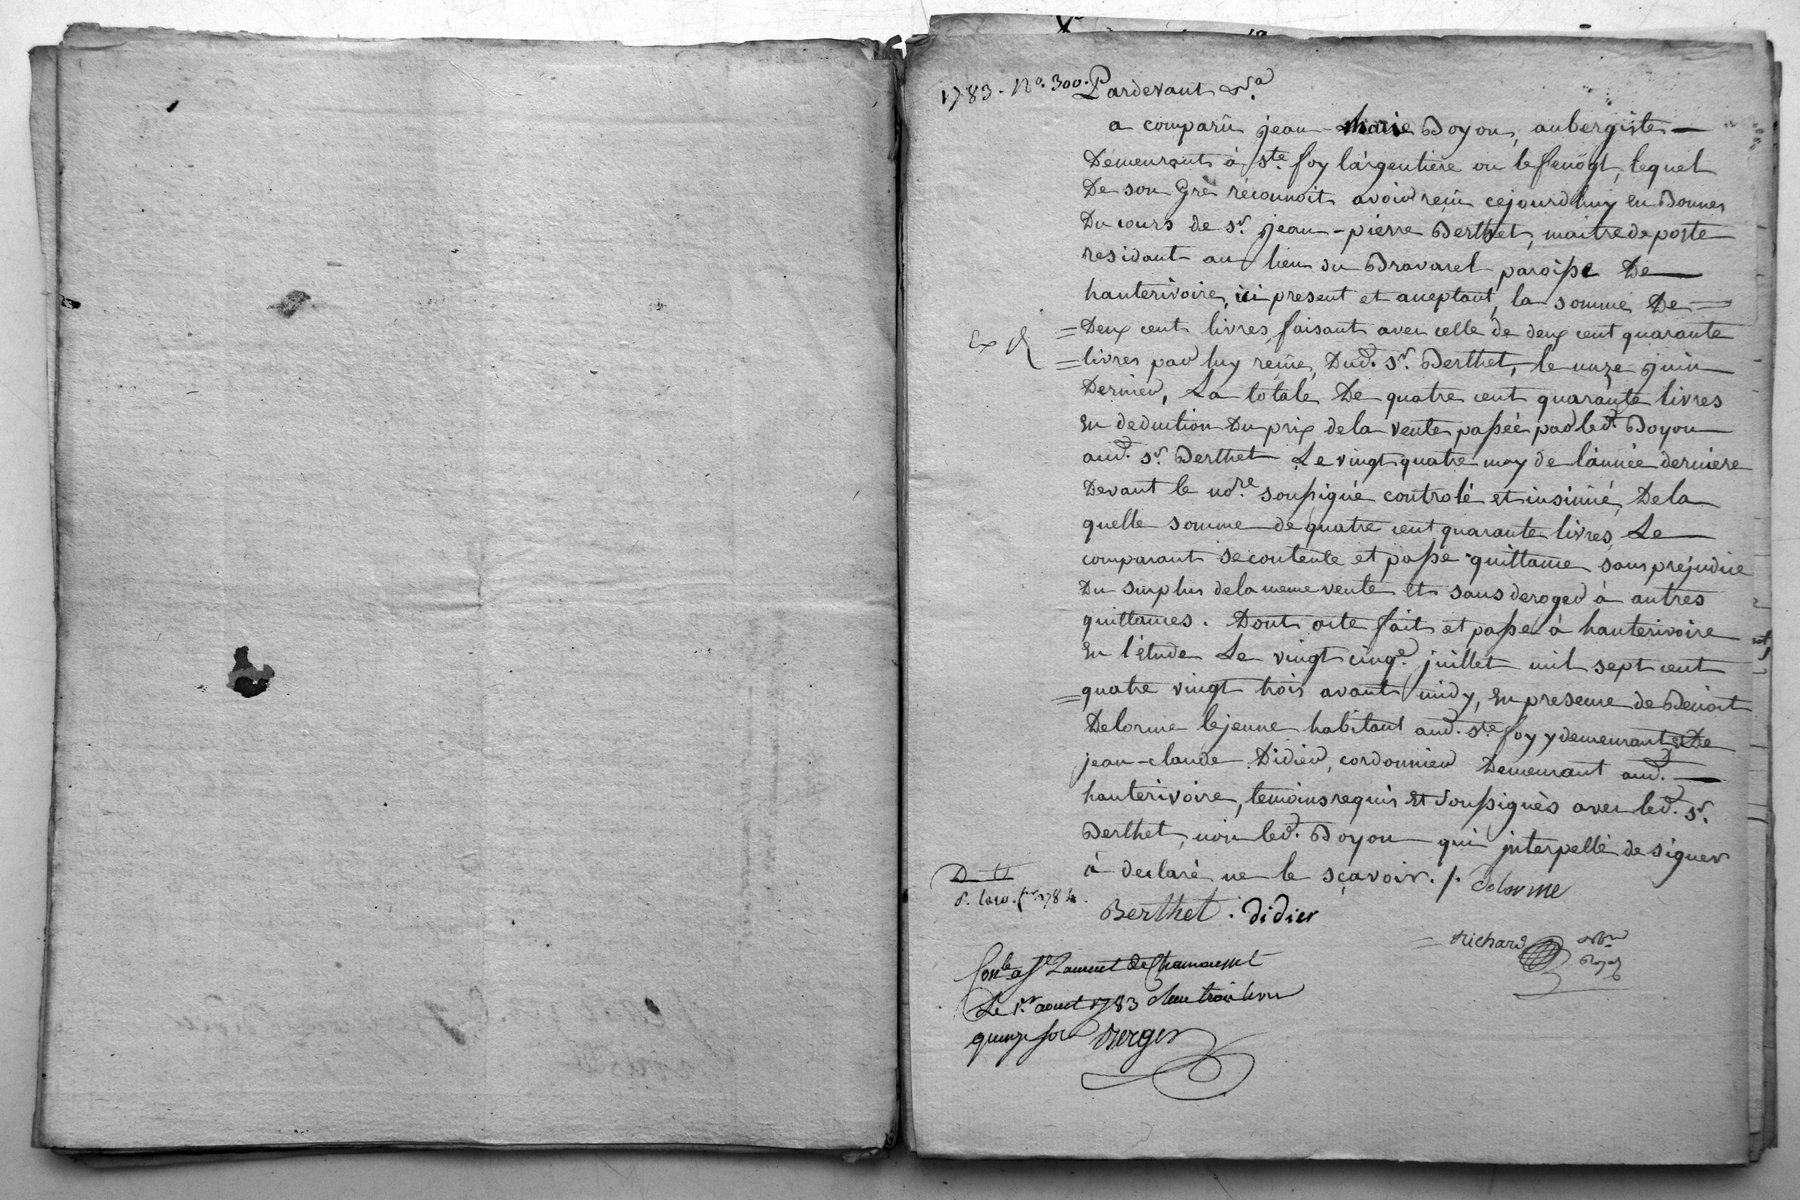 1783. No. 300. Pardevant &ra
a comparu jean-marie Boyon, aubergiste
Demeurant à ste foy l'argentiere ou le fenoyt, lequel
De son Gré réconnoit avoir reçu cejourdhuy en Bonnes
Du cours de sr. jean-pierre Berthet, maitre de poste
residant au lieu du Bravaret paroisse De
hauterivoire, ici present et aceptant, la somme De
Deux cent livres, faisant avec celle de deux cent quarante
livres par luy reçue, Dud. sr. Berthet, le onze juin
Dernier, La totale De quatre cent quarante livres
En deduction Du prix de la vente passée par led. Boyon
aud. sr. Berthet Le vingt quatre may de l'année derniere
Devant le nore. soussigné controlé et insinué, De la
quelle somme de quatre cent quarante livres, Le
comparant se contente et passe quittance sans prejudice
Du surplus de la meme vente Et sans deroger à autres
quittances. Dont acte fait et passé à hauterivoire
En l'étude Le vingt cinqe. juillet mil sept cent
quatre vingt trois avant midy, En presence de Benoit
Delorme lejeune habitant aud. ste foy y demeurant et De
jean-claude Didier, cordonnier Demeurant aud.
hauterivoire, temoins requis Et Soussignés avec led. sr.
Berthet, non led. Boyon qui interpellé de signer
à declaré ne le sçavoir. /. delorme
Berthet. didier
Richard
Royal
Conlé a St Laurent de Chamousset
Le 1er aout 1783 trois livres
quinze sols Berger